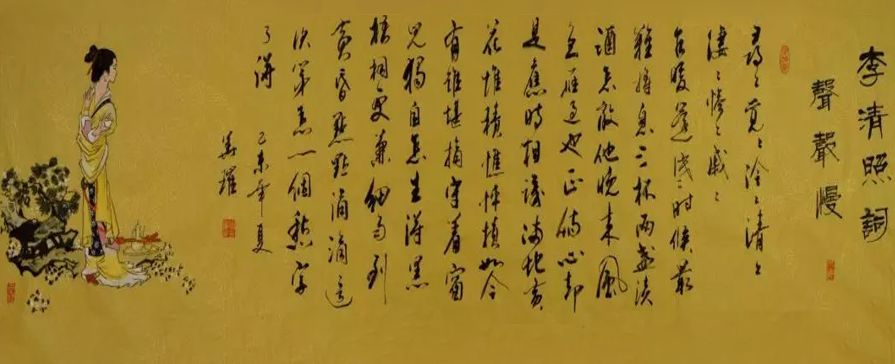 李清照詞
聲聲慢
尋々覓々冷々清々
淒々慘々戚々
乍暖還時候最
難將息三杯兩盞淡
酒怎敵他晚來風
急雁過也正傷心却
是舊時相識滿地黃
花堆積憔悴損如今
有誰堪摘守着窗
兒獨自怎生得黑
梧桐更兼細雨到
黃昏點點滴滴這
次第怎一個愁字
了得
未年夏